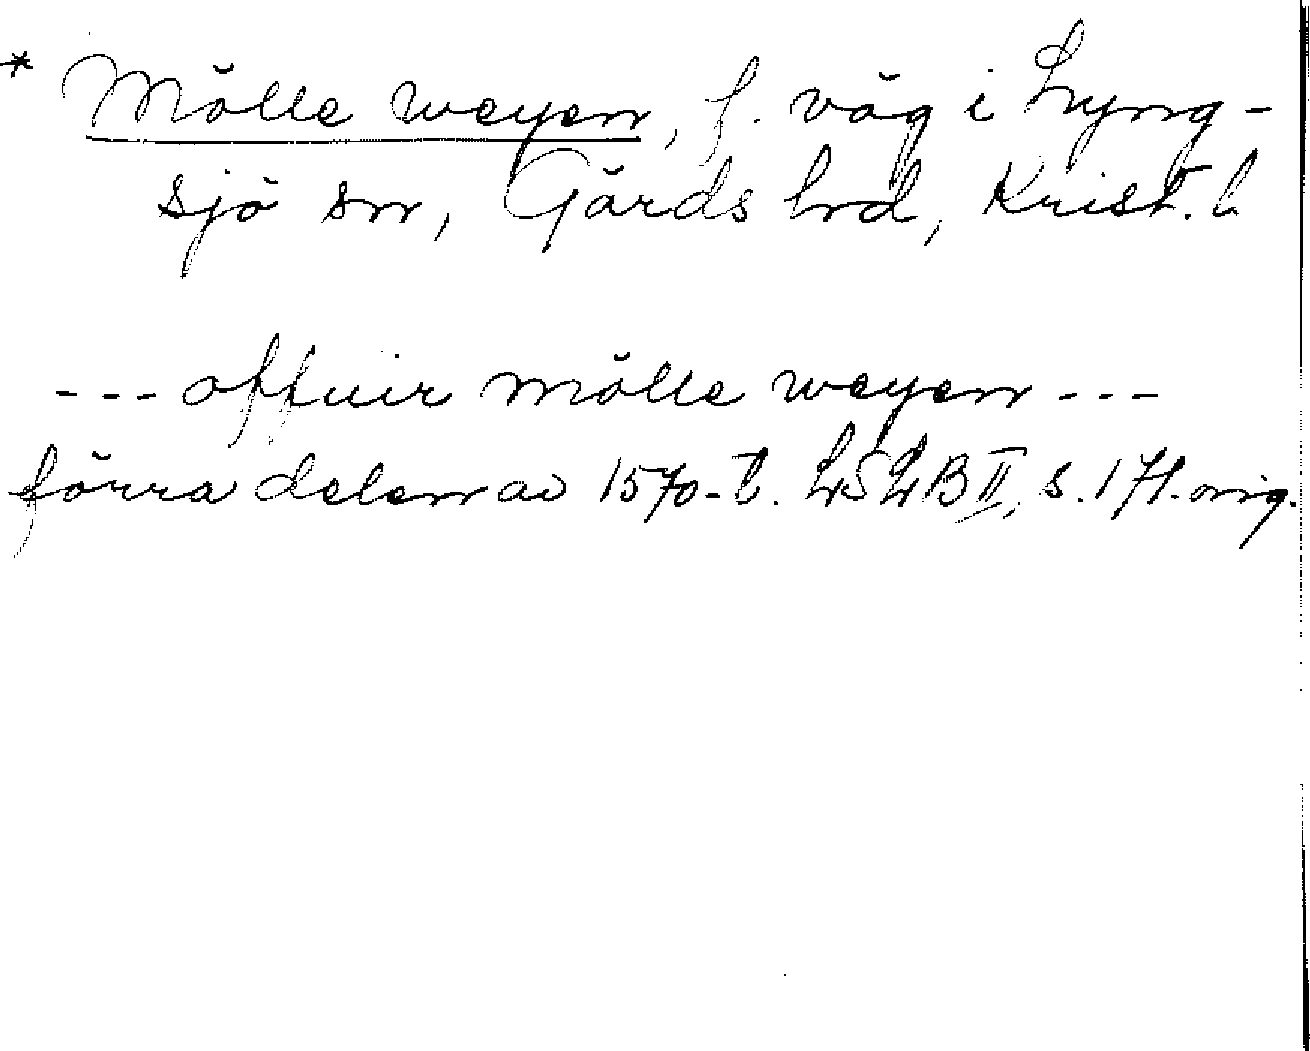 * Mölle weyen, f. väg i Lyng-
sjö sn, Gärds hrd, Krist. l.
--- offuir mölle weyen ---
förra delen av 1570-t. LSLB II, s. 171. orig.